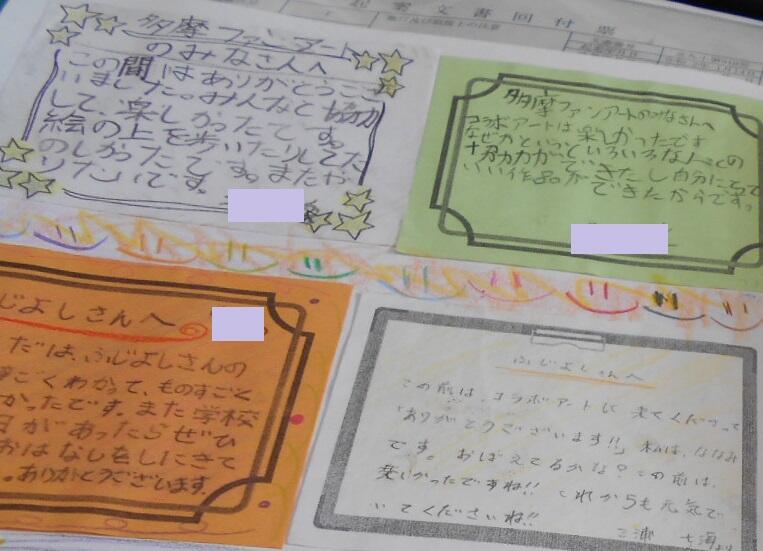 起案文書回付票
多摩ファンアート
のみなさんへ
この間はありがとうござ
いました。みんなと協力
して楽しかったです。
絵の上を歩いたりしてた
のしかったです。またや
りたいです。
多摩ファンアートのみなさんへ
コラボアートは楽しかったです
なぜかというといろいろな人との
協力ができたし自分にとって
いい作品ができたからです。
じよしさんへ
だは、ふじよしさんの
ごくわかって、ものすごく
かったです。また学校
があったらぜひ
おはなしをしにきて
。ありがとうございます。
ふじよしさんへ
この前は、コラボアートに来てくださって
「ありがとうございます!!」私は、ななみ
です。おぼえてるかな?この前は、
楽しかったですね!!これからも元気で
いてくださいね!!
三浦 七海より